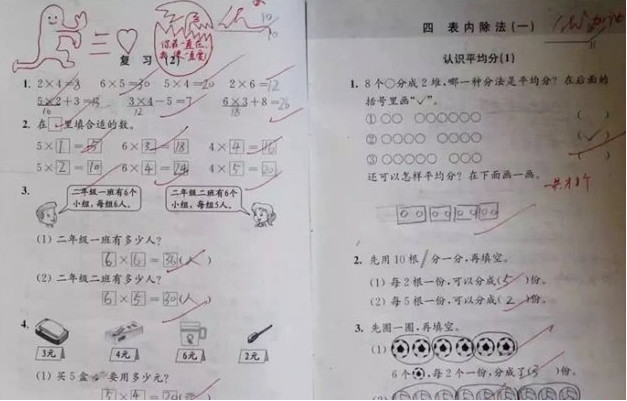 三
复 习 (2)
你若一直在
我便一直爱
1. 2×4=8 6×5=30 5×4=20 2×6=12
5×2+3= 3×4-5=7 6×3+8=26
10 12 18
2. 在□里填合适的数。
5×1=5 6×3=18 4×4=16
5×2=10 6×4=24 4×5=20
3.
二年级一班有6个小组,每组6人。
二年级二班有6个小组,每组5人。
(1) 二年级一班有多少人?
6×6=36(人)
(2) 二年级二班有多少人?
6×5=30(人)
4.
3元 4元 6元 2元
(1) 买5盒 要用多少元?
5×4=20
四 表内除法(一)
认识平均分(1)
1. 8个○分成2堆,哪一种分法是平均分? 在后面的
括号里画“✓”。
① ○○ ○○○○○○ ( )
② ○○○○ ○○○○ (✓)
③ ○○○○○ ○○○ ( )
还可以怎样平均分? 在下面画一画。
2. 先用10根 分一分,再填空。
(1) 每2根一份,可以分成(5)份。
(2) 每5根一份,可以分成(2)份。
3. 先圈一圈,再填空。
(1)
6个 ,每2个一份,分成了(3)份。
(2)